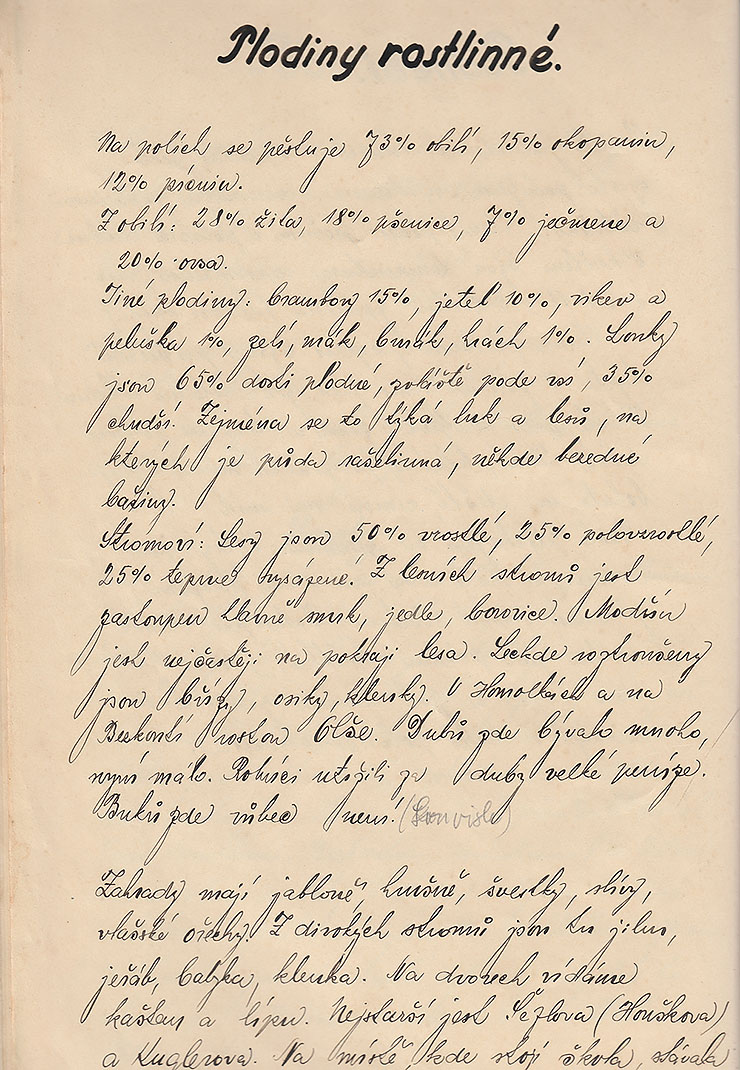 Plodiny rostlinné.
Na polích se pěstuje 73% obilí, 15% okopanin,
12% pícnin.
Z obilí: 28% žita, 18% pšenice, 7% ječmene a
20% ovsa.
Jiné plodiny: brambory 15%, jetel 10%, vikev a
peluška 1%, zelí, mák, burák, hrách 1%. Louky
jsou 65% dosti plodné, zvláště pode vsí, 35%
chudší. Zejména se to týká luk a lesů, na
kterých je půda rašelinná, někde bezedné
bažiny.
Stromoví: Lesy jsou 50% vzrostlé, 25% polovzrostlé,
25% teprve vysázené. Z lesních stromů jest
zastoupen hlavně smrk, jedle, borovice. Modřín
jest nejčastěji na pokraji lesa. Leckde roztroušeny
jsou břízy, osiky, klenky. V Homolkách a na
rostou Olše. Dubů zde bývalo mnoho,
nyní málo. Rolníci utržili za duby velké peníze.
Buků zde vůbec není.
Zahrady mají jabloně, hrušně, švestky, slívy,
vlašské ořechy. Z divokých stromů jsou tu jilm,
jeřáb, babyka, klenka. Na dvorech vídáme
kaštan a lípu. Nejstarší jest (Houškova)
a Kuglerova. Na místě, kde stojí škola, stávala